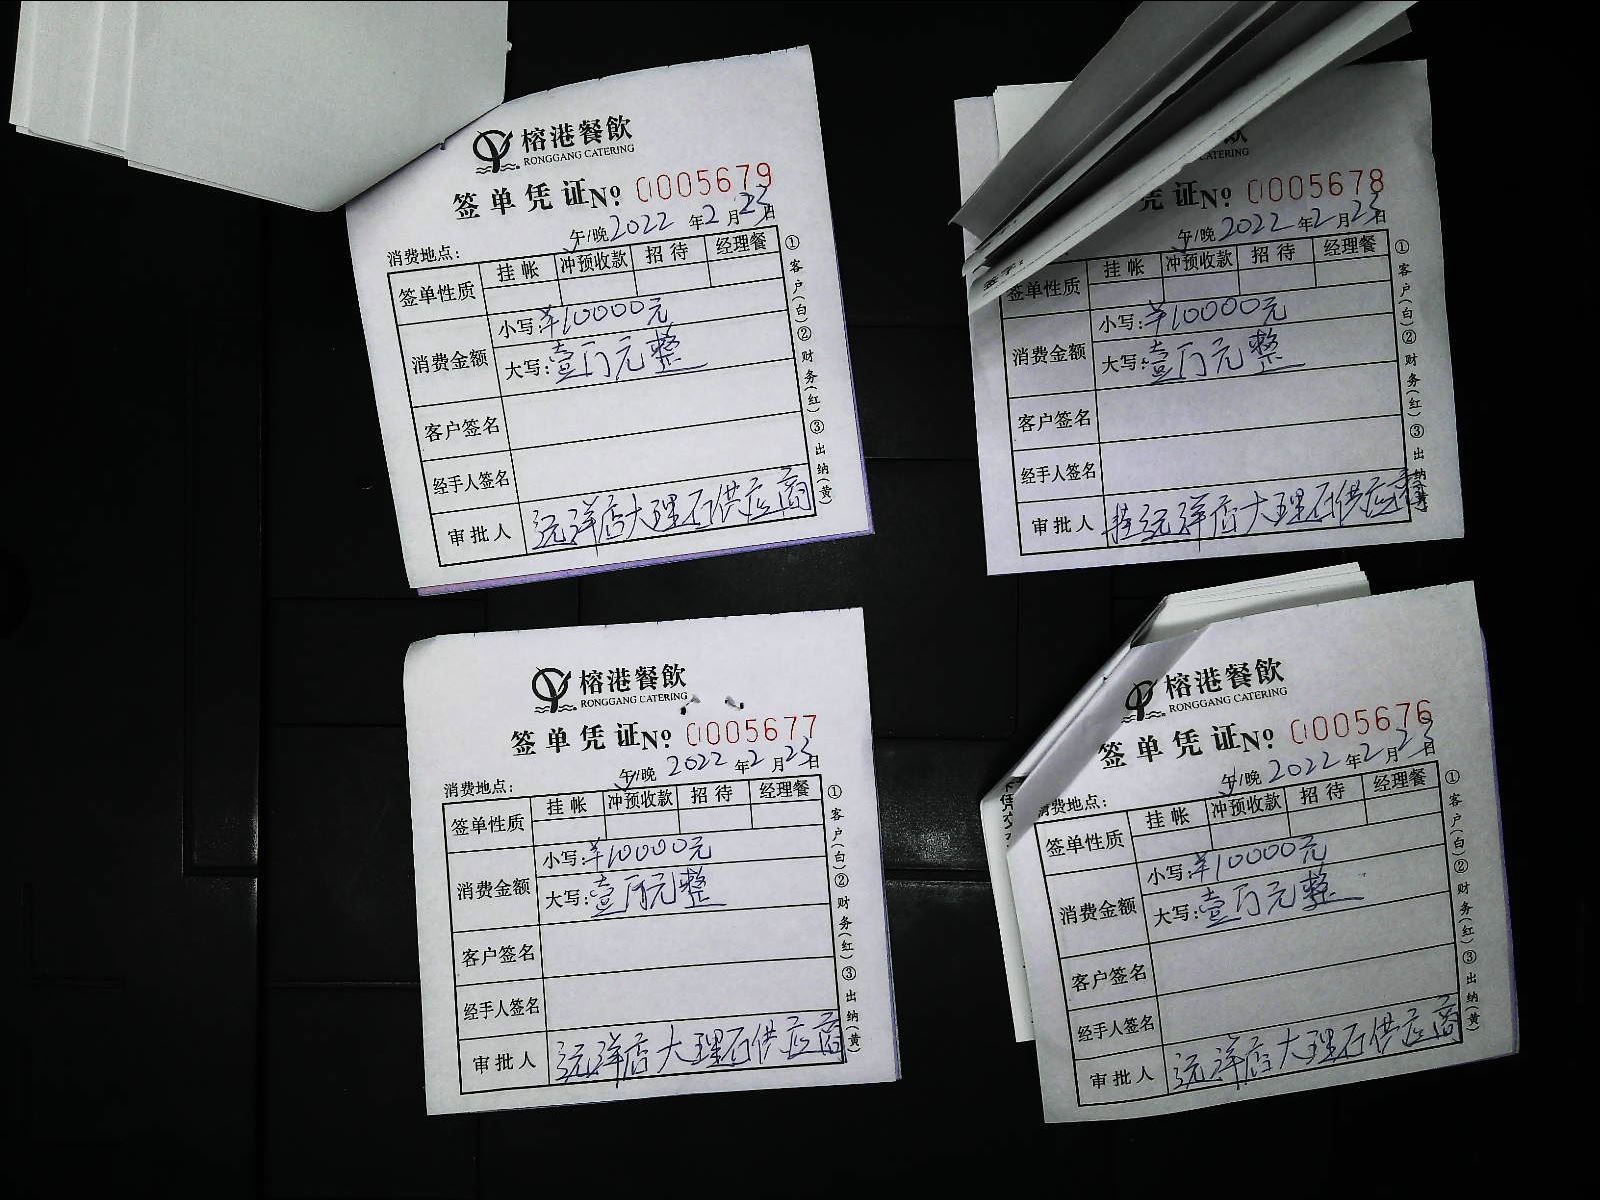 榕港餐飲
RONGGANG CATERING
签单凭证No. 0005679
午/晚 2022年2月23日
消费地点：
签单性质 挂帐 冲预收款 招待 经理餐
消费金额
小写：¥10000元
大写：壹万元整
客户签名
经手人签名
审批人 远洋店大理石供应商
①客户(白)②财务(红)③出纳(黄)
飲
CATERING
凭证No. 0005678
午/晚 2022年2月23日
签单性质 挂帐 冲预收款 招待 经理餐
消费金额
小写：¥10000元
大写：壹万元整
客户签名
经手人签名
审批人 挂远洋店大理石供应商
①客户(白)②财务(红)③出纳(黄)
榕港餐飲
RONGGANG CATERING
签单凭证No. 0005677
午/晚 2022年2月23日
消费地点：
签单性质 挂帐 冲预收款 招待 经理餐
消费金额
小写：¥10000元
大写：壹万元整
客户签名
经手人签名
审批人 远洋店大理石供应商
①客户(白)②财务(红)③出纳(黄)
榕港餐飲
RONGGANG CATERING
签单凭证No. 0005676
午/晚 2022年2月23日
消费地点：
签单性质 挂帐 冲预收款 招待 经理餐
消费金额
小写：¥10000元
大写：壹万元整
客户签名
经手人签名
审批人 远洋店大理石供应商
①客户(白)②财务(红)③出纳(黄)